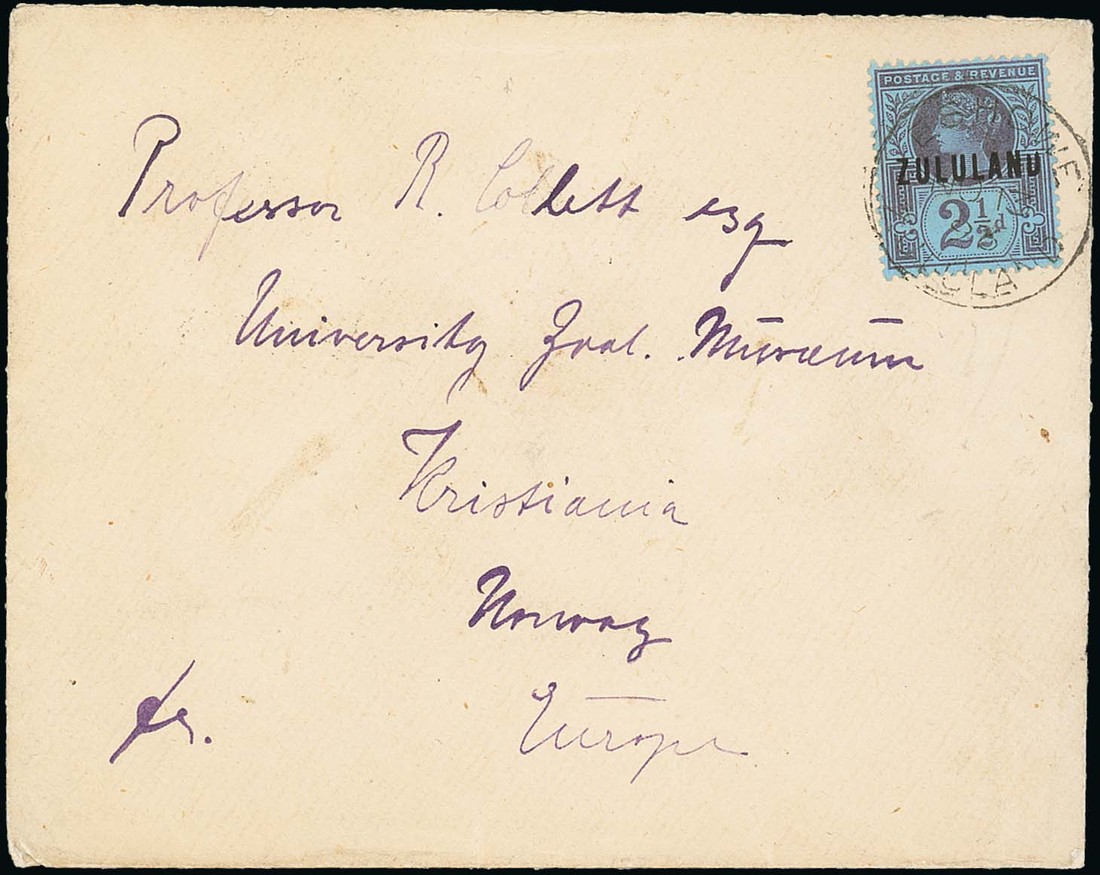 POSTAGE & REVENUE
ZULULAND
2½d
Professor R. Collett esq
University Zool. Museum
Kristiania
Norway
Europe
fr.